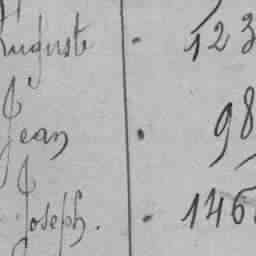 Auguste . 123
Jean . 98
Joseph. . 146